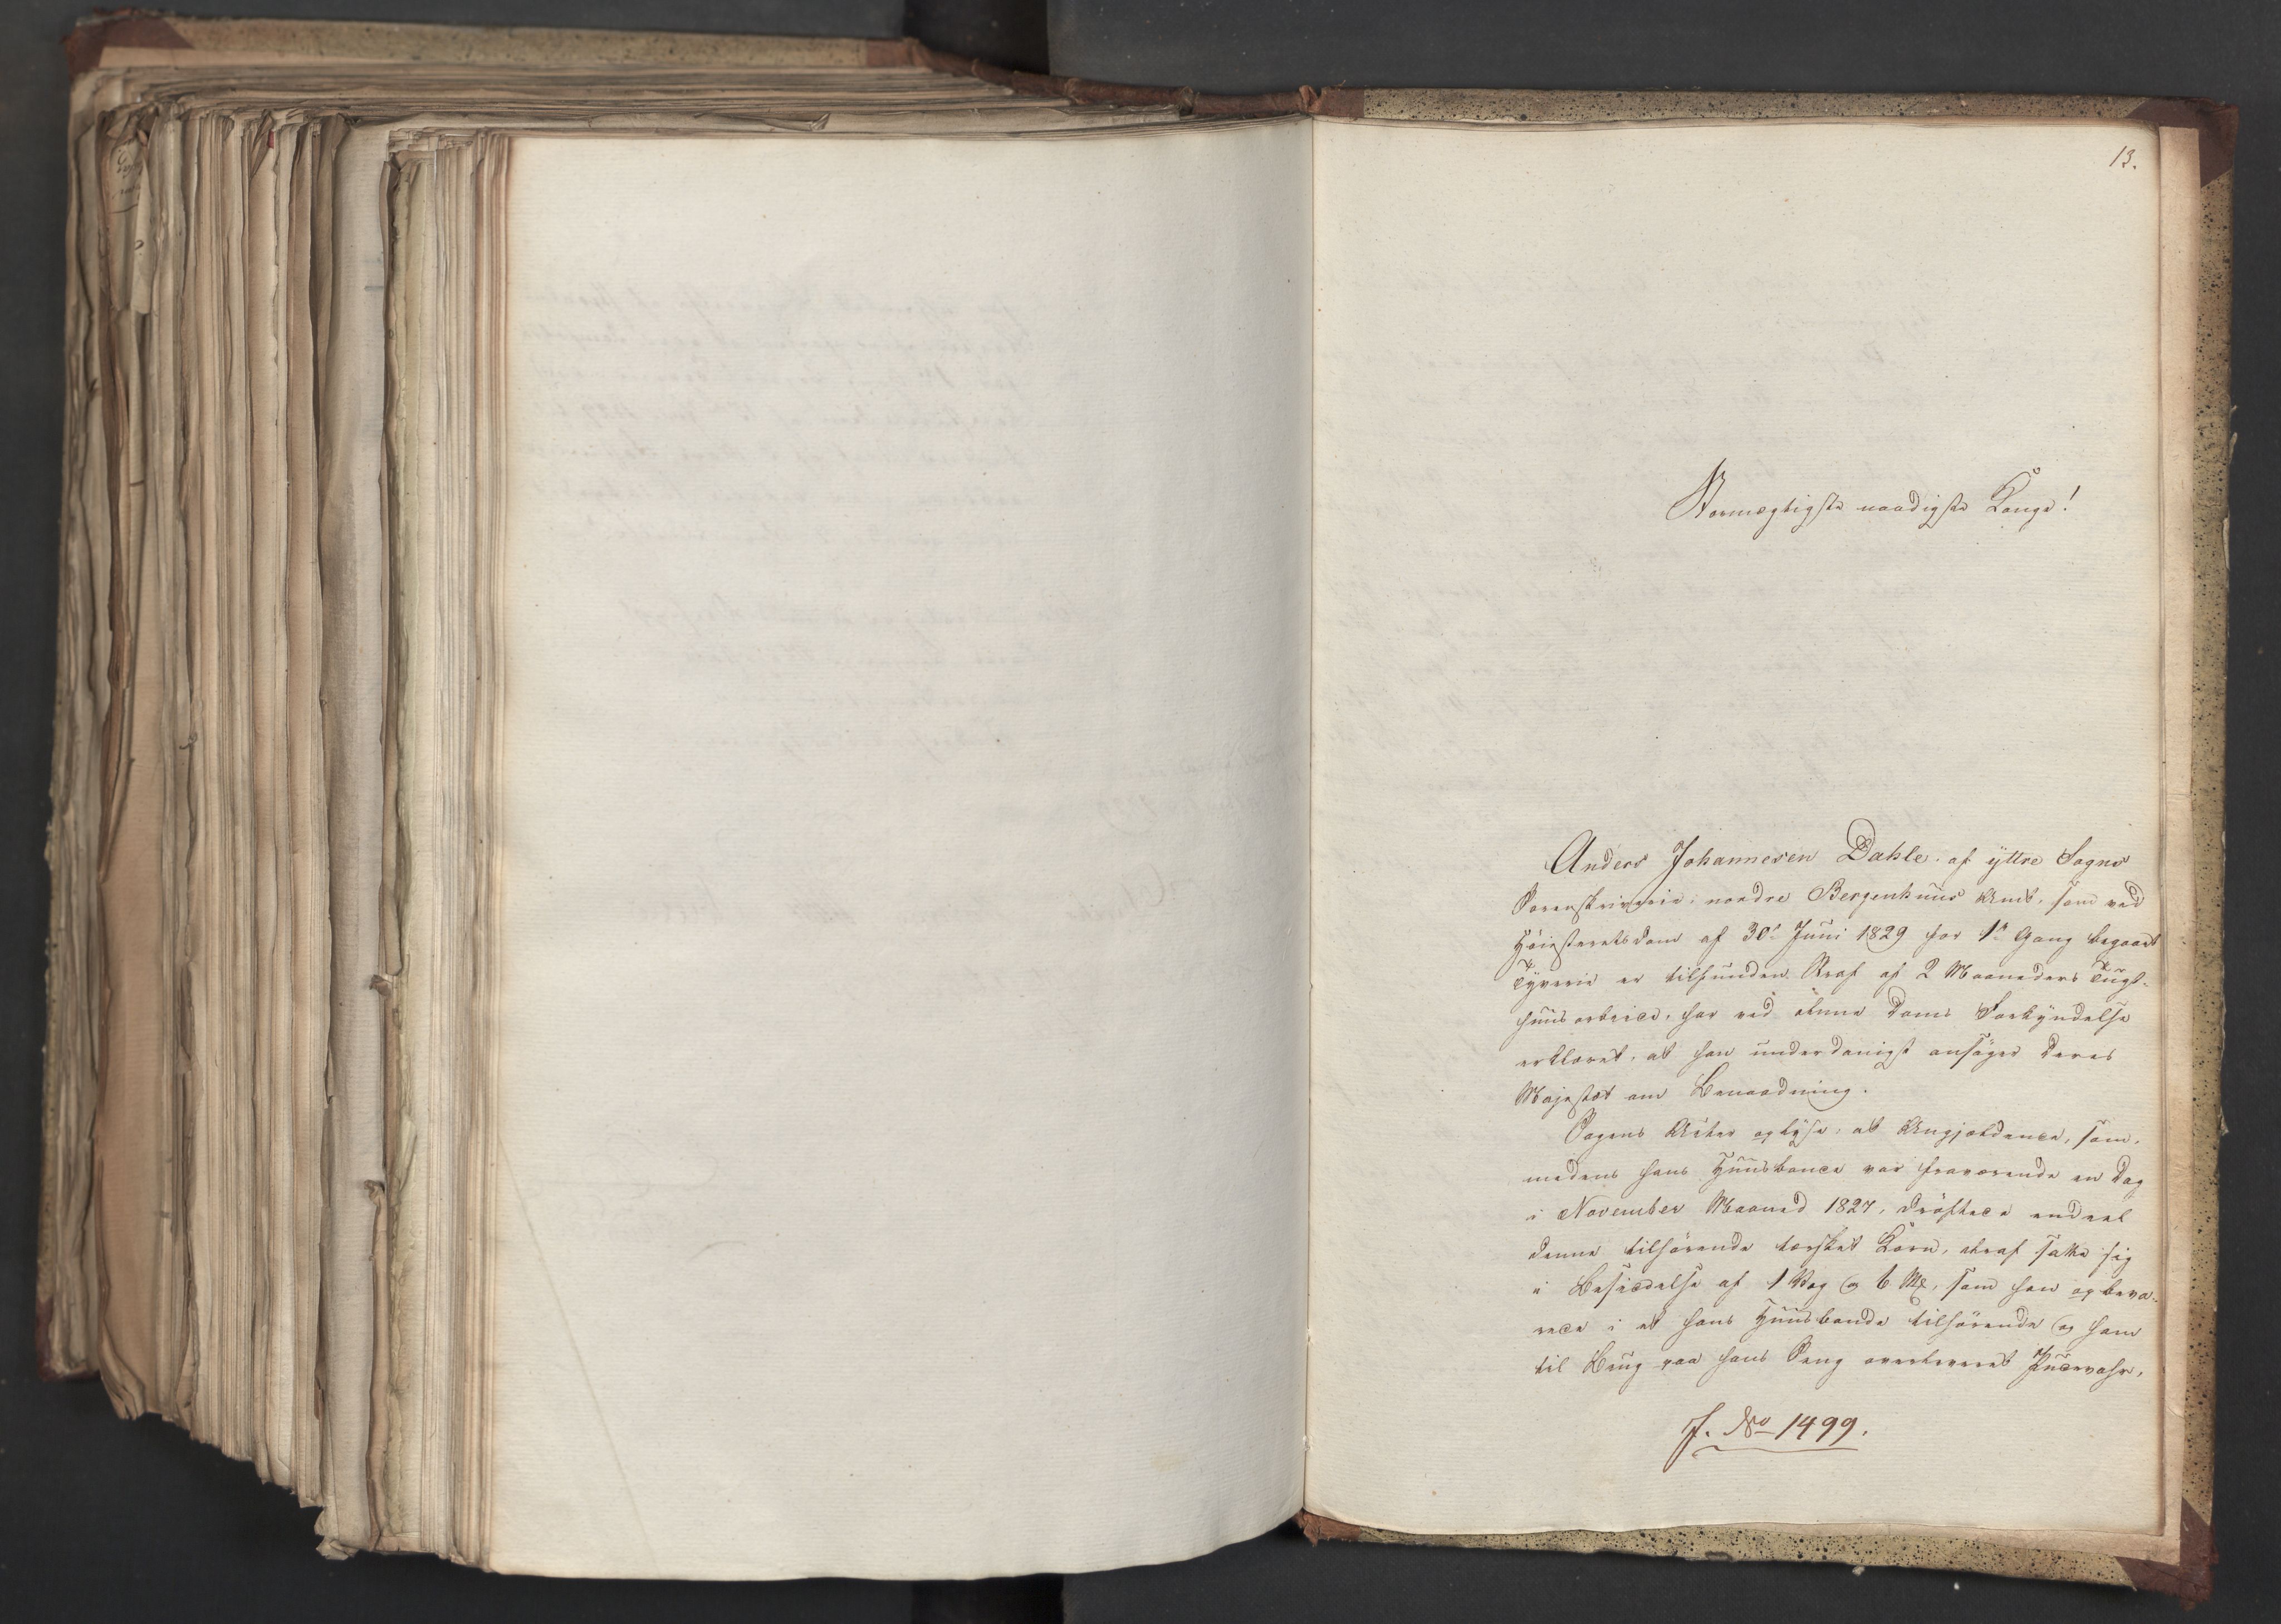 13.
Stormægtigste naadigste Konge!
Anders Johannesen Dahle af yttre Sogns
Sorenskriverie i nordre Bergenhuus Amt, som ved
Høiesteretsdom af 30te Juni 1829 for 1ste Gang begaaet
Tyverie er tilfunden Straf af 2 Maaneders Tugt-
huusarbeide, har ved denne Doms Forkyndelse
erklæret, at han underdanigst ansøger Deres
Majestæt om Benaadning.
Sagens Akter oplyse, at Angjældende, som,
medens hans Huusbonde var fraværende en Dag
i November Maaned 1827, drøftede endeel
denne tilhørende tærsket Korn, deraf satte sig
i Besiddelse af 1 Vog og 6 Mk, som han opbeva-
rede i et hans Huusbonde tilhørende og ham
til Brug paa hans Seng overleveret Pudevahr,
J. No 1499.